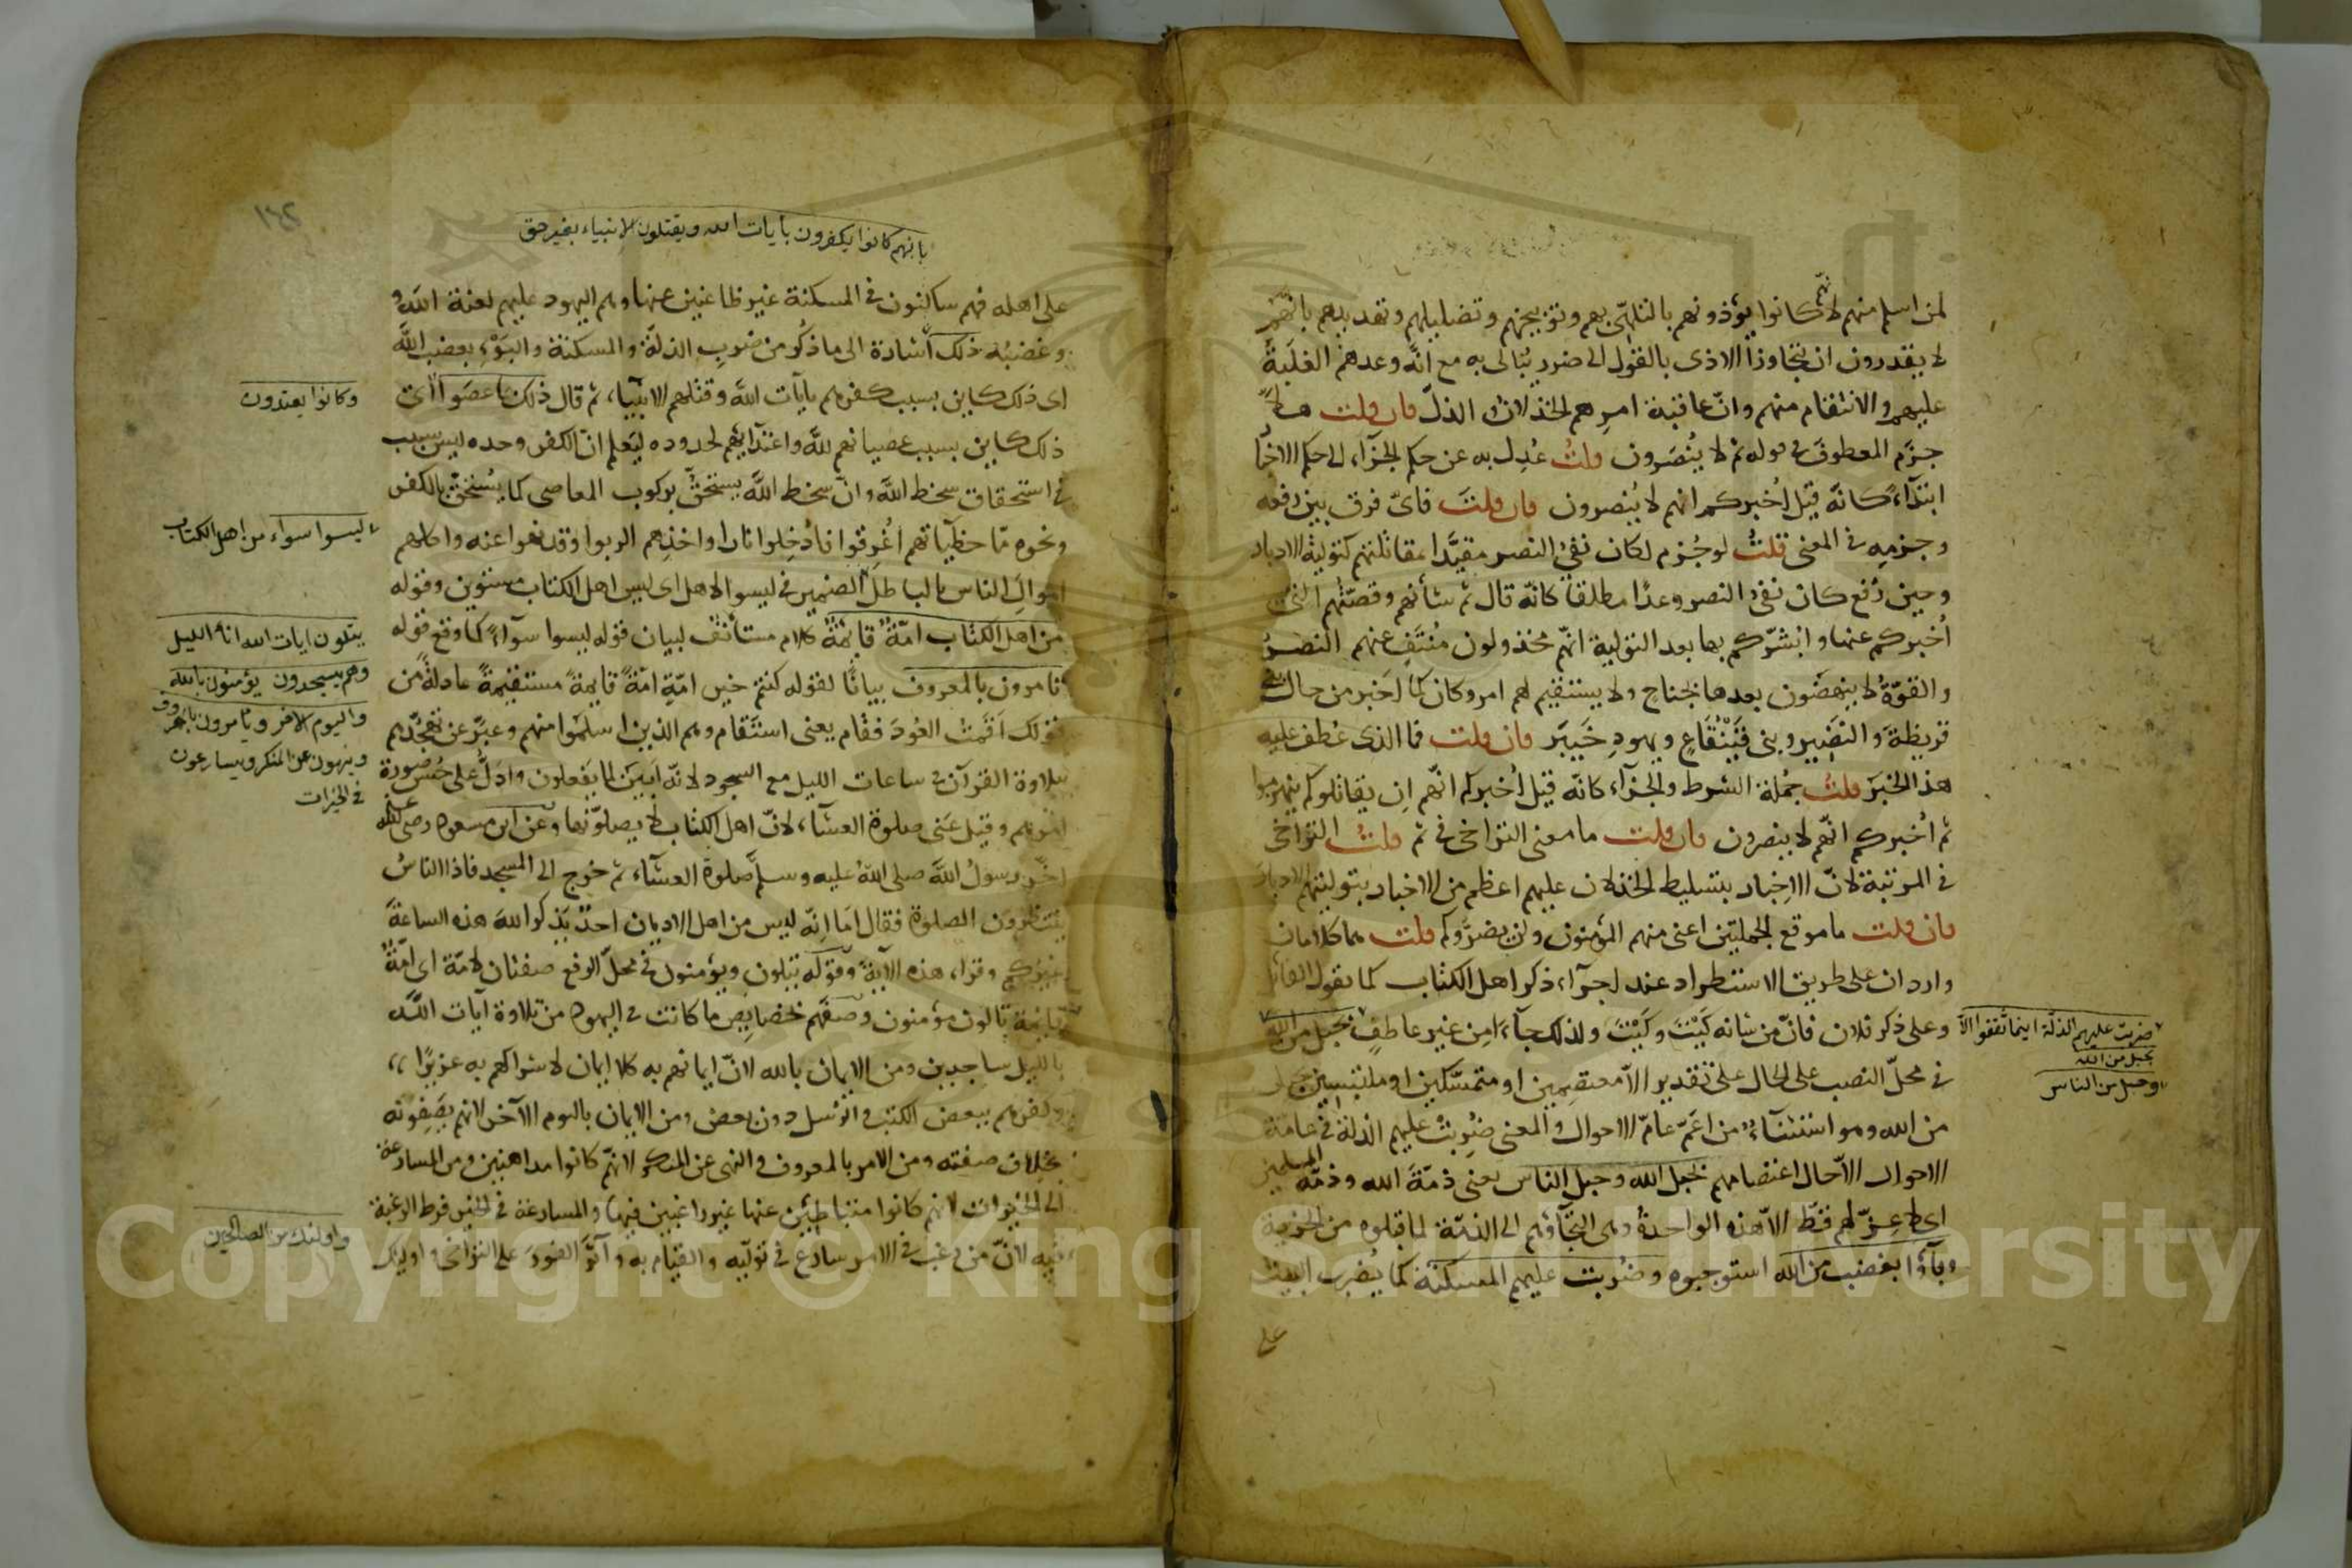 لمن اسلم منهم لانهم كانوا يؤذونهم بالتلهّى بهم وتوبيخهم وتضليلهم وتهديدهم بانهم
لا يقدرون ان يتجاوزوا الاذى بالقول الى ضرر يُبالى به مع انّه وعدهم الغلبة
عليهم والانتقام منهم وانّ عاقبة امرهم الخذلان والذلّ فان قلت هلا
جزم المعطوف فى قوله ثم لا يُنصَرون قلتُ عُدِل به عن حكم الجزآء الى حكم الاخبار
ابتدآءً كانّه قيل اُخبركم انهم لا يُنصرون فان قلتَ فاىّ فرق بين رفعه
وجزمِه فى المعنى قلتُ لو جُزم لكان نفىُ النصر مقيَّدا بمقاتلتهم كتولية الادبار
وحين رُفع كان نفىُ النصر وعدًا مطلقا كانّه قال ثم شأنهم وقصّتُهم التى
اُخبركم عنها واُبشّركم بها بعد التولية انّهم مخذولون مُنتَفٍ عنهم النصرُ
والقوّةُ لا ينهضون بعدها بجناح ولا يستقيم لهم امر وكان كما اَخبر من حال بنى
قريظةَ والنَضِير وبنى قَيْنُقَاعٍ ويهودِ خَيبَر فان قلت فما الذى عُطف عليه
هذا الخبَر قلتُ جُملة الشرط والجزآء كانّه قيل اُخبركم انّهم اِن يقاتلوكم ينهزموا
ثم اُخبركم انّهم لا ينصرون فان قلت ما معنى التراخى فى ثم قلتُ التراخى
فى المرتبة لانّ الاِخبار بتسليط الخذلان عليهم اعظم من الاخبار بتوليتهم الادبارَ
فان قلت ما موقع الجملتين اعنى منهم المؤمنون ولن يضرّوكم قلت هما كلامان
واردان على طريق الاستطراد عند اجرآء ذكر اهل الكتاب كما يقول القائل
وعلى ذكر فلان فانّ من شانه كَيْتَ وكَيْتَ ولذلك جآءَا من غير عاطفٍ بحَبل من الله
ضربت عليهم الذلّة اينما ثقفوا الّا
بحبل من الله
وحبل من الناس
فى محلّ النصب على الحال على تقدير الّا معتصِمين او متمسّكين او ملتبسين بحبل
من الله وهو استثنآءٌ من اَعَمّ عامّ الاحوال والمعنى ضُرِبتْ عليهم الذلة فى عامّة
الاحوال الّا حال اعتصامهم بحبل الله وحبل الناس يعنى ذمّةَ الله وذمّة المسلمين
اى لا عِزّ لهم قطّ الّا هذه الواحدةُ وهى التجآؤهم الى الذمّة لما قبلوه من الجزية
وبآؤا بغضب من الله استوجبوه وضُربت عليهم المسكنة كما يُضرب البيت
على
بانهم كانوا يكفرون بايات الله ويقتلون الانبياء بغير حق
على اهله فهم ساكنون فى المسكنة غير ظاعنين عنها وهم اليهود عليهم لعنة الله و
وغضبُه ذلك اشارة الى ما ذُكر من ضرب الذلة والمسكنة والبَوْءِ بغضب الله
اى ذلك كاين بسبب كفرهم بايات الله وقتلهم الانبيآء ثم قال ذلك بما عصَوا اى
وكانوا يعتدون
ذلك كاين بسبب عصيانهم لله واعتدآئهم لحدوده ليُعلم انّ الكفر وحده ليس بسبب
فى استحقاق سخط الله وانّ سخط الله يستحقّ بركوب المعاصى كما يُستحقّ بالكفر
ونحوه ممّا خطيآتهم اُغرِقوا فاُدخِلوا نارا واخذِهم الربوا وقد نهوا عنه واكلهم
ليسوا سواء من اهل الكتاب
اموالَ الناس بالباطل الضمير فى ليسوا لاهل اى ليس اهل الكتاب مستوين وقوله
من اهل الكتاب امّةٌ قايمةٌ كلام مستأنف لبيان قوله ليسوا سوآءً كما وقع قوله
يتلون ايات الله اناء الليل
تامرون بالمعروف بيانًا لقوله كنتم خير امّةٍ امّةً قايمةً مستقيمةً عادلةً من
وهم يسجدون يؤمنون بالله
قولك اَقمتُ العُودَ فقام يعنى استقام وهم الذين اسلموا منهم وعبّر عن تهجّدهم
واليوم الاخر ويأمرون بالمعروف
بتلاوة القرآن فى ساعات الليل مع السجود لانّه اَبيَن لما يفعلون وادلّ على حُسن صورة
وينهون عن المنكر ويسارعون
فى الخيرات
امرهم وقيل عَنى صلوة العشآء لانّ اهل الكتاب لا يصلّونها وعن ابن مسعود رضى الله عنه
اخّر رسولُ الله صلى الله عليه وسلم صلوة العشآء ثم خرج الى المسجد فاذا الناسُ
ينتظرون الصلوة فقال اَما اِنّه ليس من اهل الاديان احدٌ يذكر الله هذه الساعةَ
غيرُكم وقرا هذه الآيةَ وقوله يتلون ويؤمنون فى محلّ الرفع صفتان لامّة اى امّةٌ
قايمة تالون مؤمنون وصفهم بخصايص ما كانت فى اليهود من تلاوة آيات الله
بالليل ساجدين ومن الايمان بالله لانّ ايمانهم به كلا ايمان لاشراكهم به عزيرًا
وكفرهم ببعض الكتب والرُسل دون بعض ومن الايمان باليوم الآخر لانهم يصِفونه
بخلاف صفته ومن الامر بالمعروف والنهى عن المنكر لانّهم كانوا مداهنين ومن المسارعة
الى الخيرات لانهم كانوا متباطئين عنها غير راغبين فيها والمسارعة فى الخير فرط الرغبة
واولئك من الصالحين
فيه لانّ من رغب فى الامر سارع فى تولّيه والقيام به وآثَرَ الفورَ على التراخى واوليك
Copyright © King Saud University